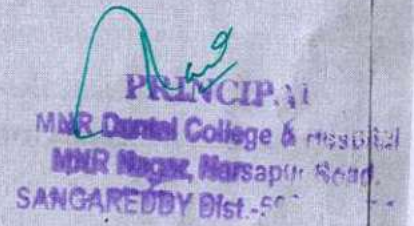 PRINCIPAL
MNR Dental College & Hospital
MNR Nagar, Narsapur Road,
SANGAREDDY Dist.-5